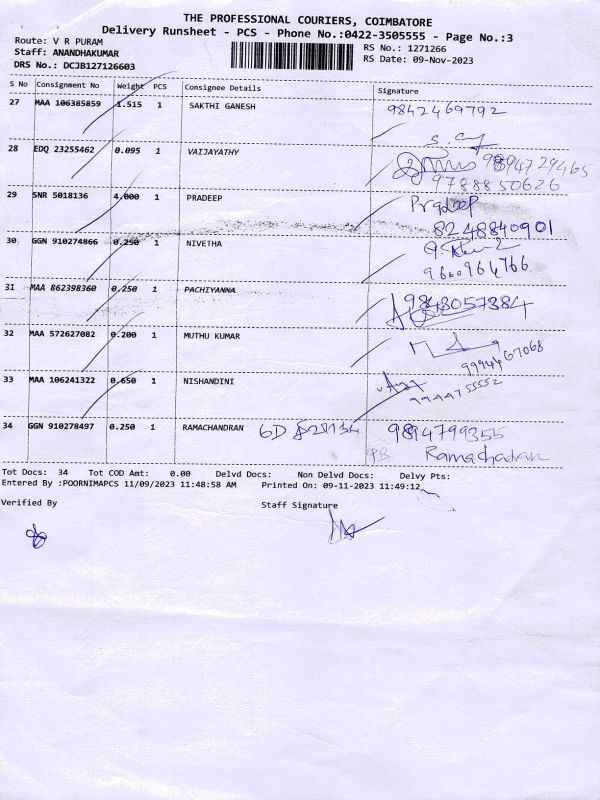 THE PROFESSIONAL COURIERS, COIMBATORE
Delivery Runsheet - PCS - Phone No.:0422-3505555 - Page No.:3
Route: V R PURAM
RS No.: 1271266
Staff: ANANDHAKUMAR
RS Date: 09-Nov-2023
DRS No.: DCJB127126603
S No Consignment No Weight PCS Consignee Details Signature
27 MAA 106385859 1.515 1 SAKTHI GANESH 9842469792
28 EDQ 23255462 0.095 1 VAIJAYATHY 9894729465
9788850626
29 SNR 5018136 4.000 1 PRADEEP Pradeep
8248840901
30 GGN 910274866 0.250 1 NIVETHA
9600964766
31 MAA 862398360 0.250 1 PACHIYANNA 9843057384
32 MAA 572627082 0.200 1 MUTHU KUMAR
9994467068
33 MAA 106241322 0.650 1 NISHANDINI
9944755552
34 GGN 910278497 0.250 1 RAMACHANDRAN 9894799355
PB Ramachadran
Tot Docs: 34 Tot COD Amt: 0.00 Delvd Docs: Non Delvd Docs: Delvy Pts:
Entered By :POORNIMAPCS 11/09/2023 11:48:58 AM Printed On: 09-11-2023 11:49:12
Verified By Staff Signature